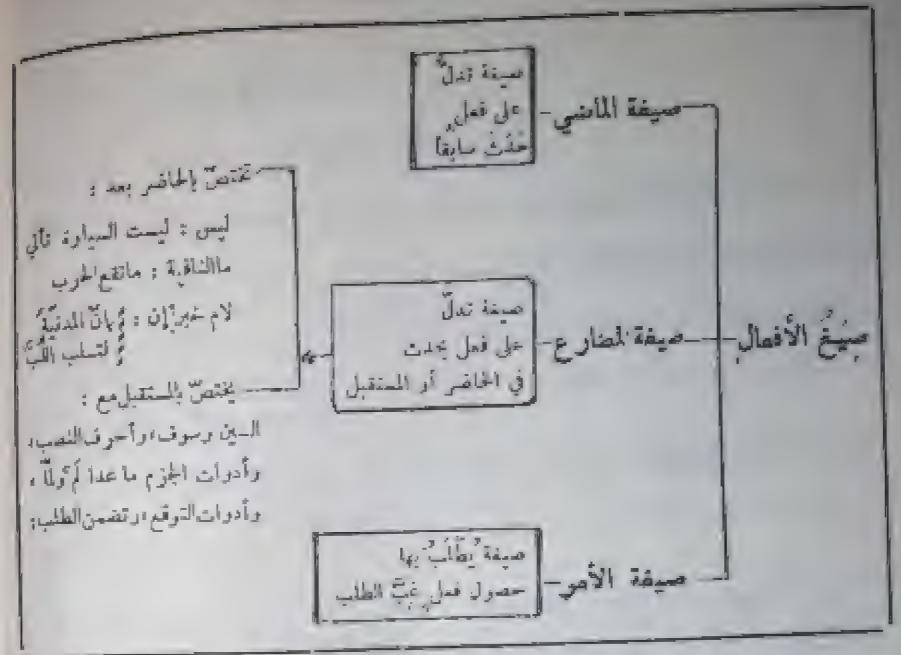 صِيَغُ الأفعالِ
صيغة الماضي
صيغة تدلّ
على فعلٍ
حَدَثَ سابقاً
صيغة المضارع
صيغة تدلّ
على فعل يحدث
في الحاضر أو المستقبل
تختصّ بالحاضر بعد :
ليس : ليست السيارة تأتي
ما النافية : ما تقع الحرب
لام خبر إن : إنّ المدنيّة
لتسلب اللبّ
يختصّ بالمستقبل مع :
السين وسوف، وأحرف النصب،
وأدوات الجزم ما عدا لم ولمّا،
وأدوات التوقع، وتضمن الطلب:
صيغة الأمر
صيغة يُطلَبُ بها
حصول فعلٍ غِبَّ الطلب